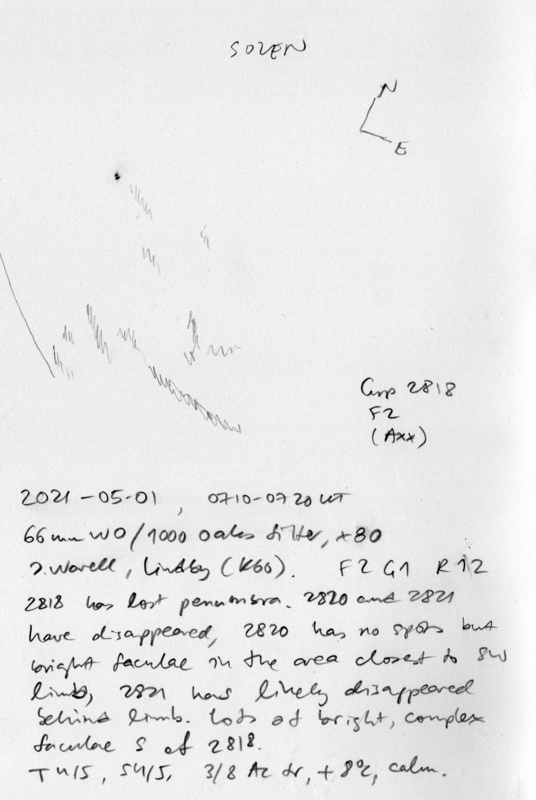 SOLEN
N
E
Grp 2818
F2
(Axx)
2021-05-01, 0710-0720 UT
66 mm WO/1000 Oaks filter, x80
J. Warell, Lindby (K60). F2 G1 R12
2818 has lost penumbra. 2820 and 2821
have disappeared, 2820 has no spots but
bright faculae in the area closest to SW
limb, 2821 has likely disappeared
behind limb. Lots of bright, complex
faculae S of 2818.
T4/5, S4/5, 3/8 Ac tr, +8°C, calm.